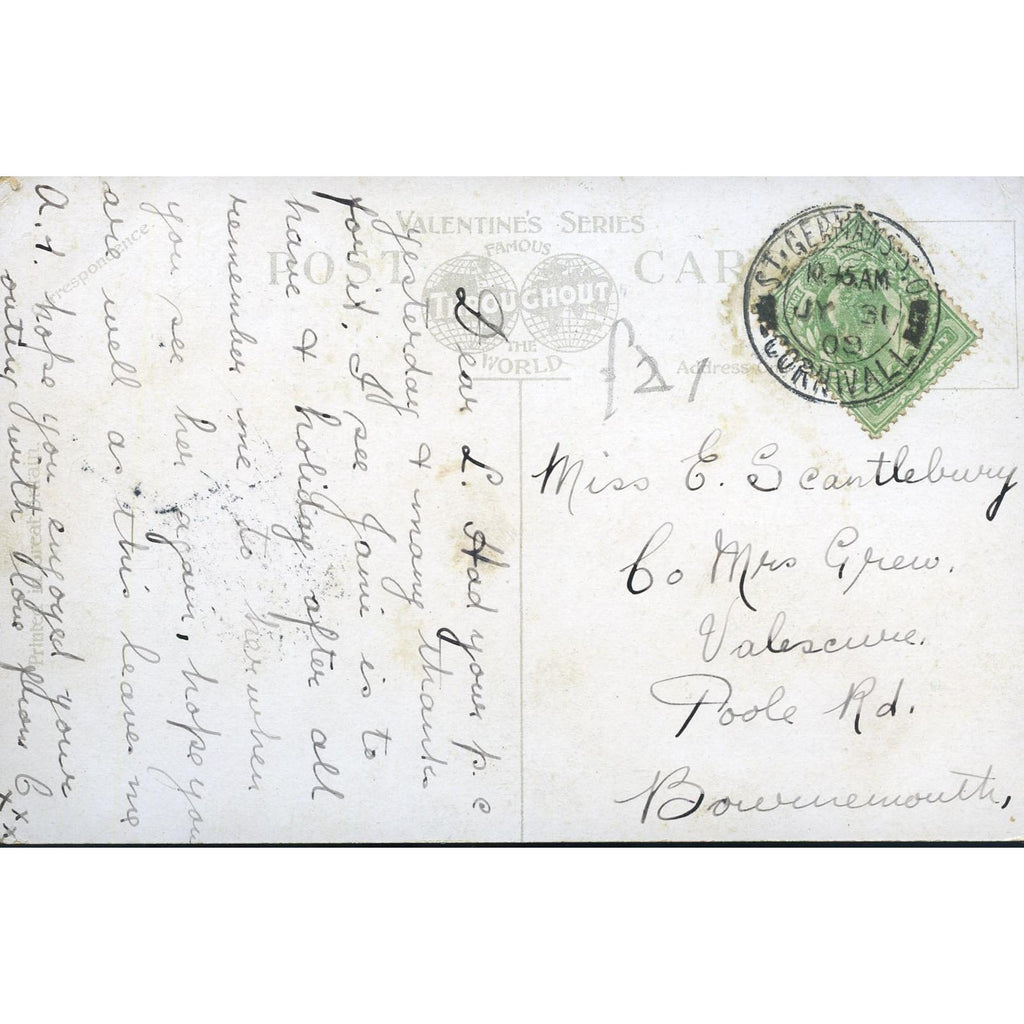 VALENTINE'S SERIES
FAMOUS
THROUGHOUT
THE
WORLD
POST CARD
Correspondence.
Address
Printed in Great Britain
ST. GERMANS S.O
10.45 AM
JY 31
09
CORNWALL
£2/
Miss E. Scantlebury
Co Mrs Grew.
Valescure.
Poole Rd.
Bournemouth,
Dear L. Had your p.c
yesterday & many thanks
for it. I see Janie is to
have a holiday after all
remember me to her when
you see her again, hope you
are well as this leaves me
A.1. hope you enjoyed your
outing with love from C
xxx